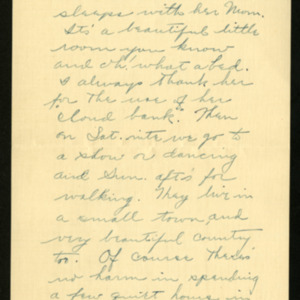 sleeps with her Mom.
Its a beautiful little
room you know
and oh, what a bed.
I always thank her
for the use of her
"cloud bank." Then
on Sat. nite we go to
a show or dancing
and Sun. afts for
walking. They live in
a small town and
very beautiful country
to. Of course theres
no harm in spending
a few quiet hours in